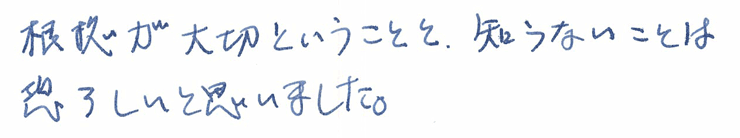 根拠が大切ということと、知らないことは
恐ろしいと思いました。